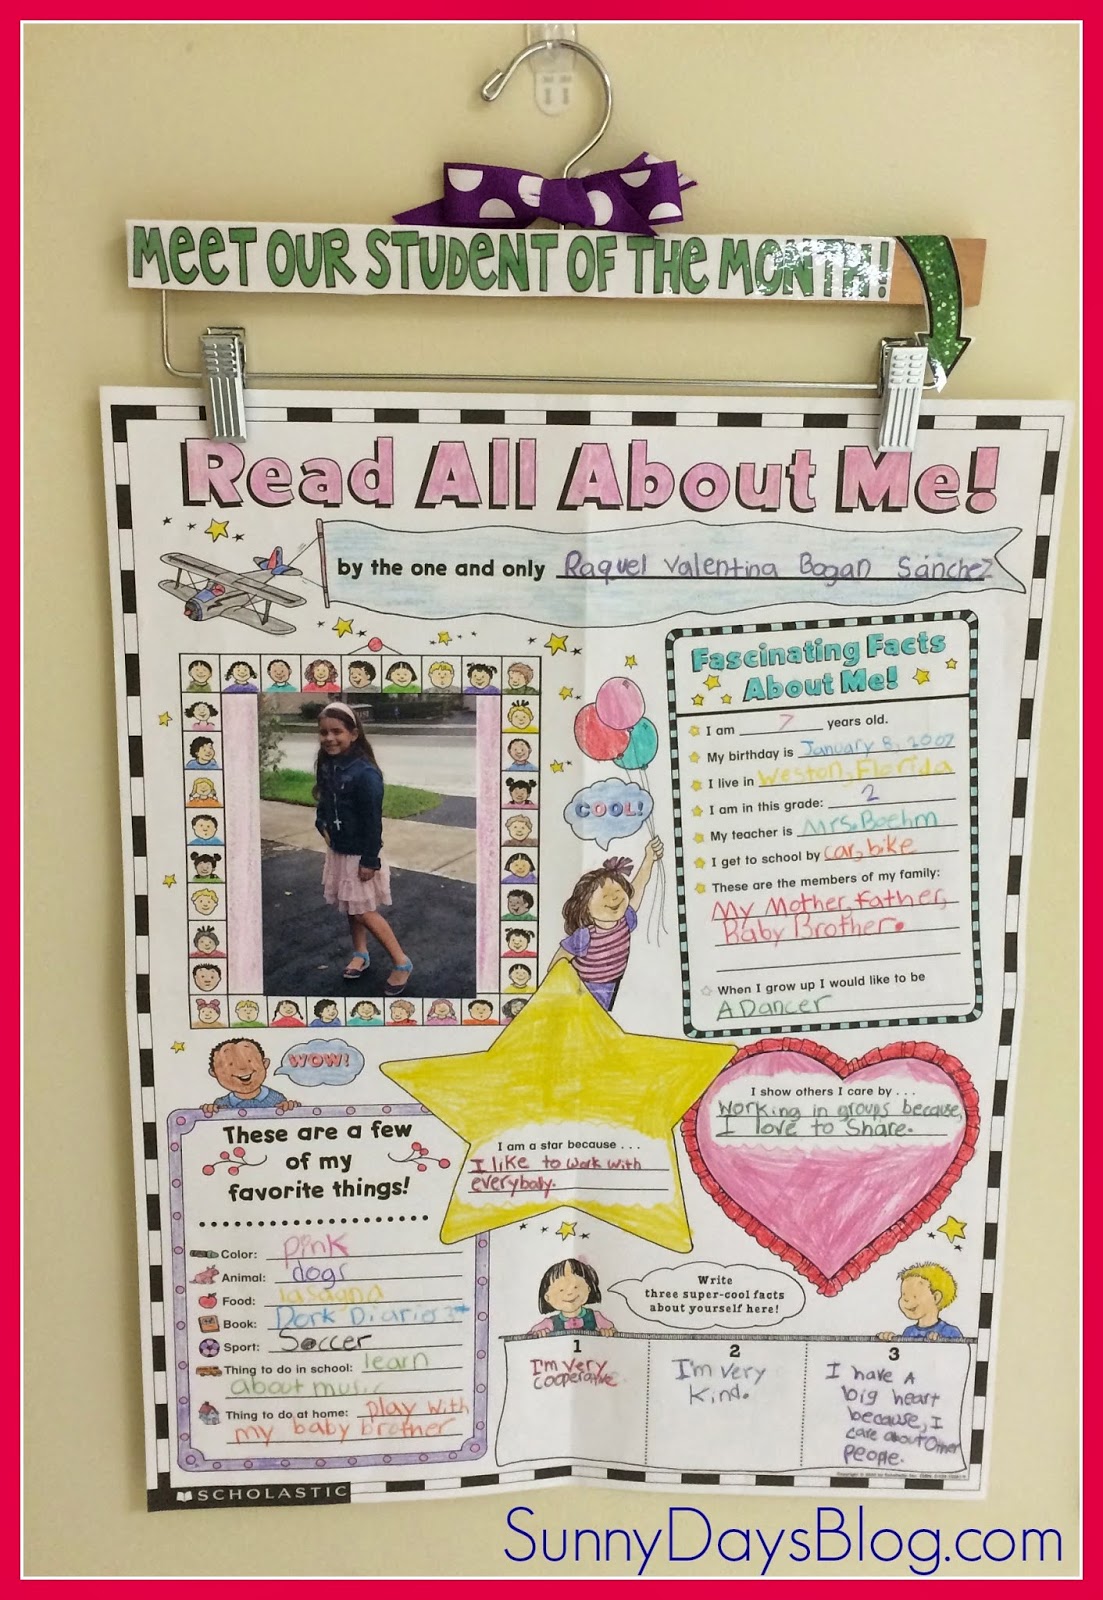 MEET OUR STUDENT OF THE MONTH!
Read All About Me!
by the one and only Raquel Valentina Bogan Sánchez
Fascinating Facts
About Me!
I am 7 years old.
My birthday is January 8, 2007
I live in Weston, Florida
I am in this grade: 2
My teacher is Mrs. Boehm
I get to school by car, bike
These are the members of my family:
My Mother, Father,
Baby Brother.
When I grow up I would like to be
A Dancer
COOL!
WOW!
These are a few
of my
favorite things!
Color: pink
Animal: dogs
Food: lasagna
Book: Dork Diaries
Sport: Soccer
Thing to do in school: learn
about music
Thing to do at home: play with
my baby brother
I am a star because . . .
I like to work with
everybody.
I show others I care by . . .
Working in groups because,
I love to share.
Write
three super-cool facts
about yourself here!
1
I'm very
cooperative
2
I'm very
kind.
3
I have A
big heart
because, I
care about Other
people.
SCHOLASTIC
SunnyDaysBlog.com